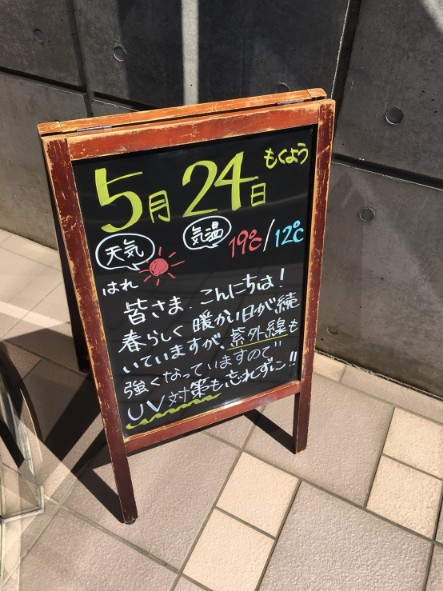 5月24日 もくよう
天気 気温 19℃/12℃
はれ
皆さま、こんにちは!
春らしく暖かい日が続
いていますが、紫外線も
強くなっていますので
UV対策も忘れずに!!